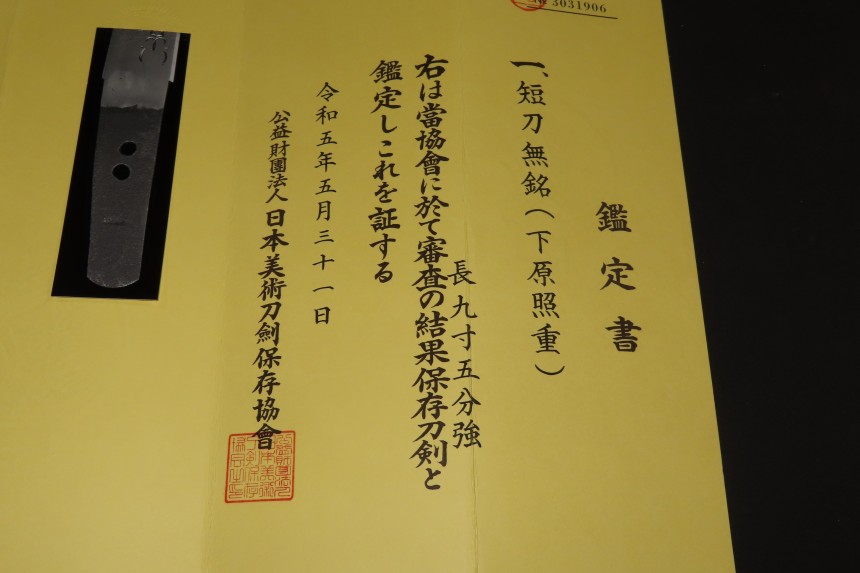 3031906
鑑定書
一、短刀無銘(下原照重)
長九寸五分強
右は當協會に於て審査の結果保存刀剣と
鑑定しこれを証する
令和五年五月三十一日
公益財團法人日本美術刀劍保存協會